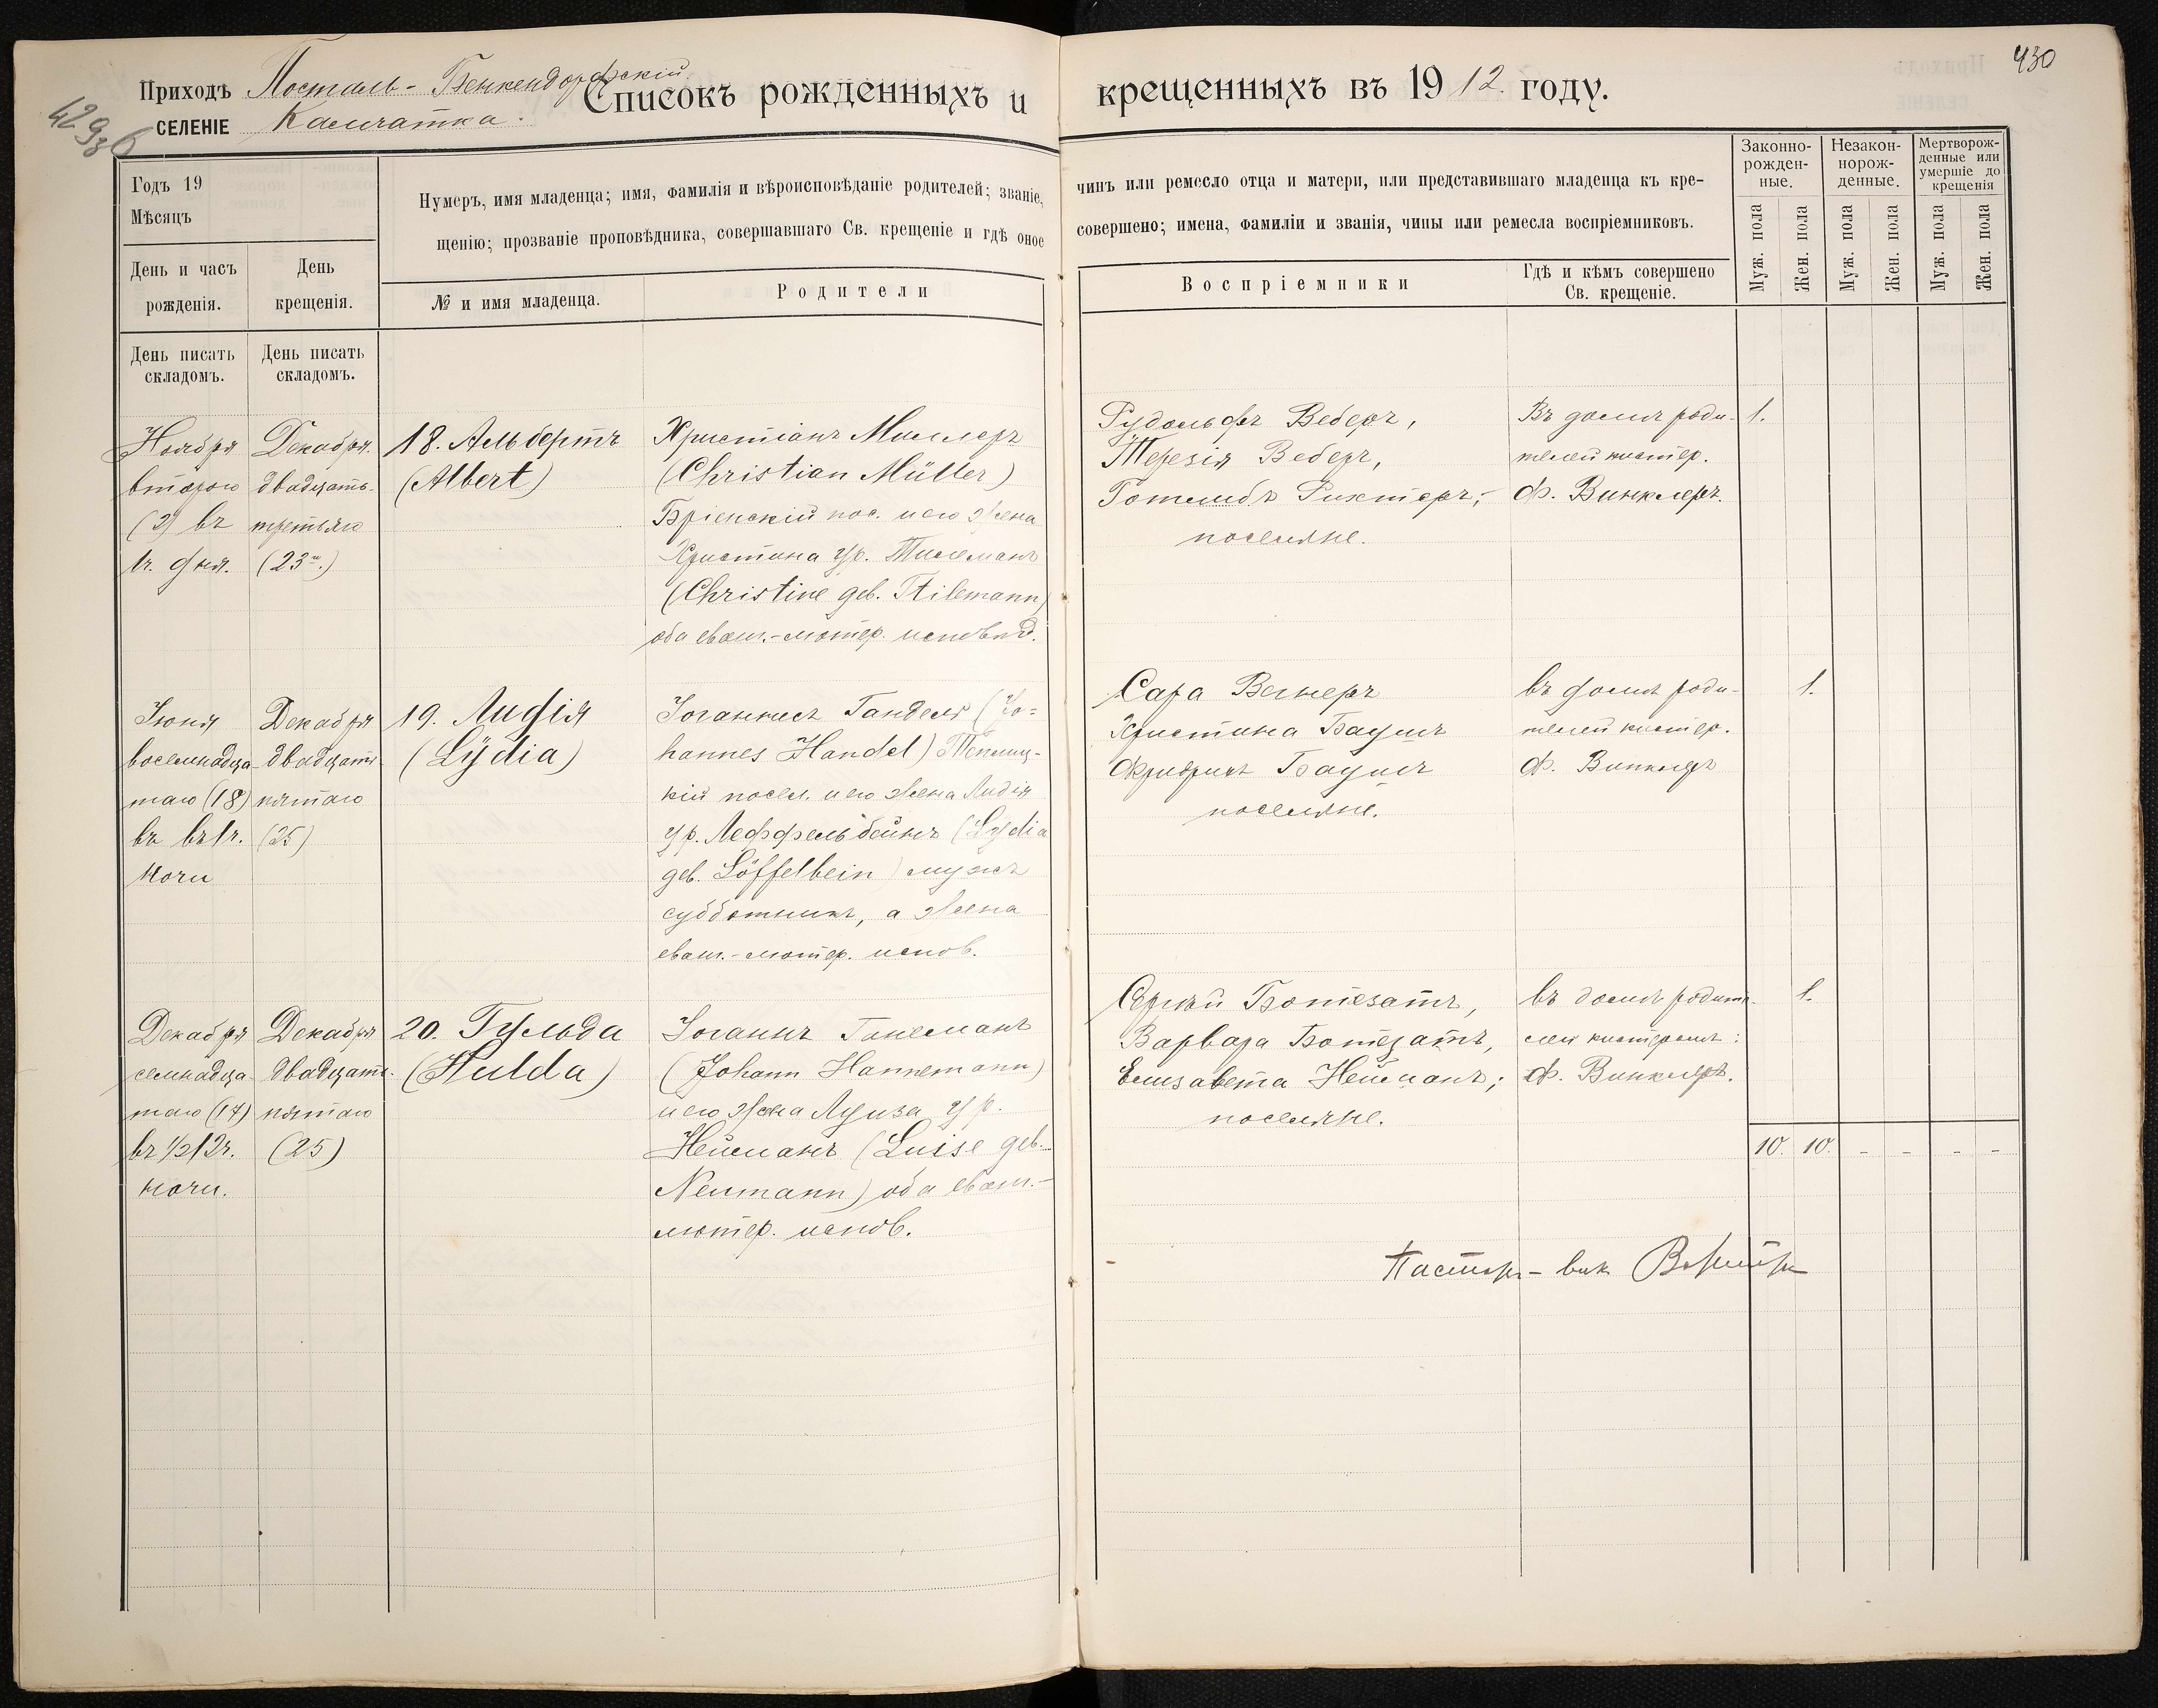 429об
430
Приходъ Посталь-Бенкендорфскій.
СЕЛЕНІЕ Камчатка.
Списокъ рожденныхъ и крещенныхъ въ 1912. году.
Годъ 19
Мѣсяцъ
День и часъ рожденія.
День крещенія.
Нумеръ, имя младенца; имя, фамилія и вѣроисповѣданіе родителей; званіе, чинъ или ремесло отца и матери, или представившаго младенца къ кре-
щенію; прозваніе проповѣдника, совершавшаго Св. крещеніе и гдѣ оное совершено; имена, фамиліи и званія, чины или ремесла воспріемниковъ.
№ и имя младенца.
Родители
Воспріемники
Гдѣ и кѣмъ совершено
Св. крещеніе.
Законно-
рожден-
ные.
Незакон-
норож-
денные.
Мертворож-
денные или
умершіе до
крещенія
Муж. пола
Жен. пола
Муж. пола
Жен. пола
Муж. пола
Жен. пола
День писать
складомъ.
День писать
складомъ.
Ноября
второго
(2) въ
1ч. дня.
Декабря.
двадцать
третьяго
(23го.)
18. Альбертъ
(Albert)
Христіанъ Миллеръ
(Christian Müller)
Бріенскій пос. и его жена
Христина ур. Тилеманъ
(Christine geb. Tilemann)
оба еванг.-лютер. исповѣд.
Рудольфъ Веберъ,
Терезія Веберъ,
Готлибъ Рихтеръ;
поселяне.
Въ домѣ роди-
телей кистер.
Ф. Винклеръ.
1.
Іюня
восемнадца-
таго (18)
въ 1ч.
ночи
Декабря
двадцать
пятаго
(25)
19. Лидія
(Lydia)
Іоганнесъ Гандель (Jo=
hannes Handel) Теплиц-
кій посел. и его жена Лидія
ур. Леффельбейнъ (Lydia
geb. Löffelbein) мужъ
субботникъ, а жена
еванг.-лютер. испов.
Сара Вегнеръ
Христина Баумъ
Фридрихъ Баумъ
поселяне.
въ домѣ роди-
телей кистер.
Ф. Винклеръ
1.
Декабря
семнадца
таго (17)
въ ½12ч.
ночи.
Декабря
двадцать
пятаго
(25)
20. Гульда
(Hulda)
Іоганнъ Ганеманъ
(Johann Hannemann)
и его жена Луиза ур.
Нейманъ (Luise geb.
Neumann) оба еванг.-
лютер. испов.
Сергѣй Ботезатъ,
Варвара Ботезатъ,
Елизавета Нейманъ;
поселяне.
въ домѣ родите-
лей кистеромъ:
Ф. Винклеръ.
1.
10. 10. - - - -
Пасторъ-вик.